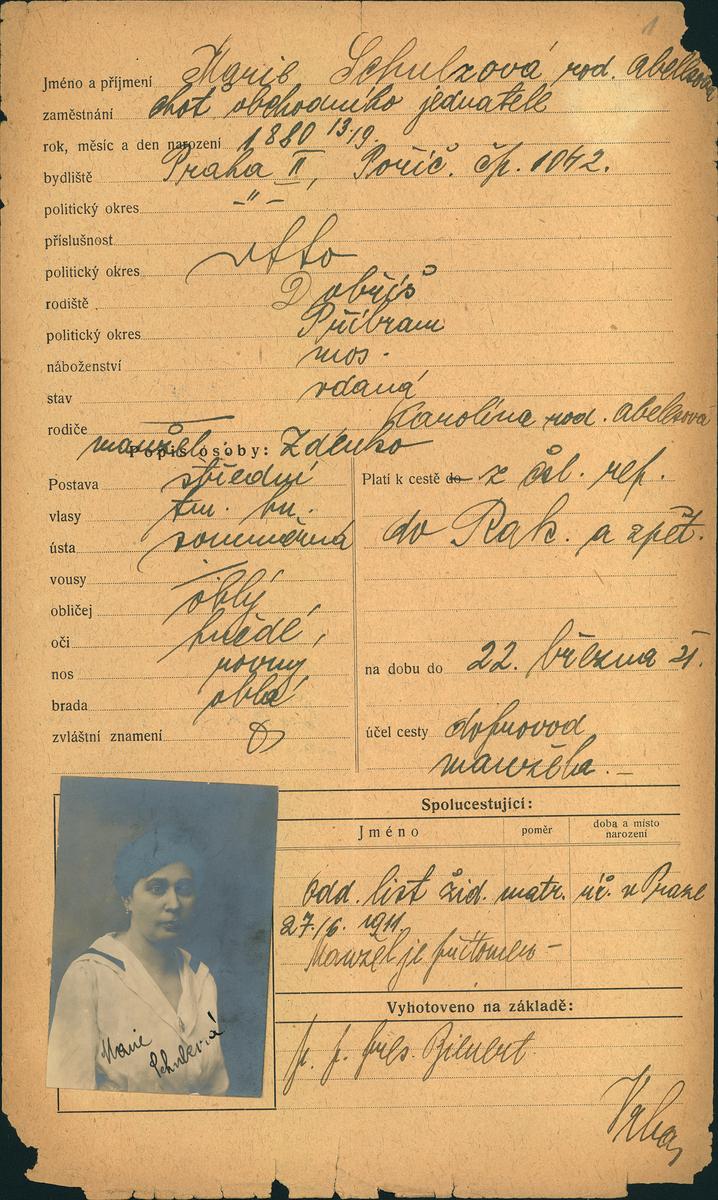 1
Jméno a příjmení Marie Schulzová rod. Abelesová
zaměstnání choť obchodního jednatele
rok, měsíc a den narození 1880 13/9.
bydliště Praha II, Poříč. čp. 1042.
politický okres –"–
příslušnost
politický okres
rodiště Dobříš
politický okres Příbram
náboženství mos.
stav vdaná
rodiče Karolina rod. Abelesová
manžel: Zdenko
Popis osoby:
Postava střední
vlasy tm. hn.
ústa souměrná
vousy —
obličej oblý
oči hnědé,
nos rovný
brada oblá
zvláštní znamení
Platí k cestě do z čsl. rep.
do Rak. a zpět.
na dobu do 22. března 21.
účel cesty doprovod
manžela. –
Spolucestující:
Jméno poměr doba a místo narození
Odd. list žid. matr. úř. v Praze
27./6. 1911.
Manžel je přítomen –
Vyhotoveno na základě:
Marie
Schulzová